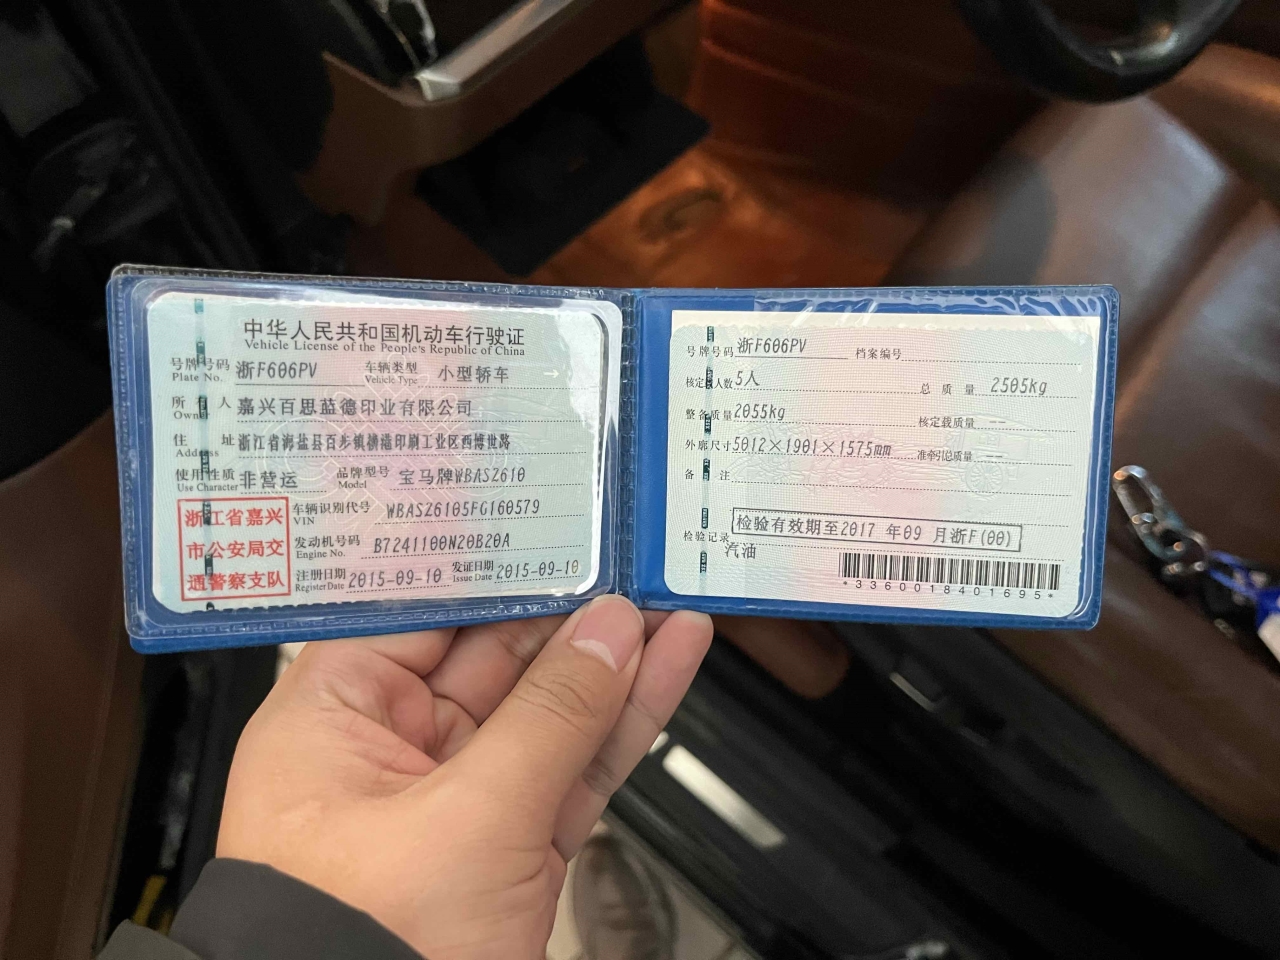 中华人民共和国机动车行驶证
Vehicle License of the People's Republic of China
号牌号码 浙F606PV 车辆类型 小型轿车
Plate No. Vehicle Type
所有人 嘉兴百思蓝德印业有限公司
Owner
住址 浙江省海盐县百步镇横港印刷工业区西博世路
Address
使用性质 非营运 品牌型号 宝马牌WBASZ610
Use Character Model
浙江省嘉兴
市公安局交
通警察支队
车辆识别代号 WBASZ6105FG160579
VIN
发动机号码 B7241100N20B20A
Engine No.
注册日期 2015-09-10 发证日期 2015-09-10
Register Date Issue Date
号牌号码 浙F606PV 档案编号
核定人数 5人 总质量 2505kg
整备质量 2055kg 核定载质量 --
外廓尺寸 5012×1901×1575mm 准牵引总质量 --
备注
检验有效期至2017 年09 月浙F(00)
检验记录
汽油
*3360018401695*